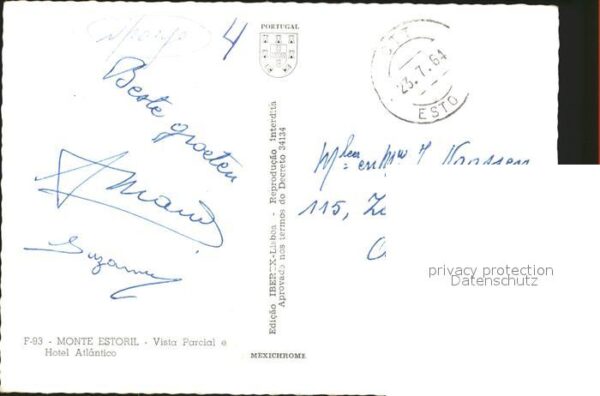 4
PORTUGAL
23.7.64
ESTO
Beste groeten
Suzanne
Edição IBEROX-Lisboa - Reprodução Interdita
Aprovado nos termos do Decreto 34134
en Mw
115,
privacy protection
Datenschutz
F-93 - MONTE ESTORIL - Vista Parcial e
Hotel Atlântico
MEXICHROME